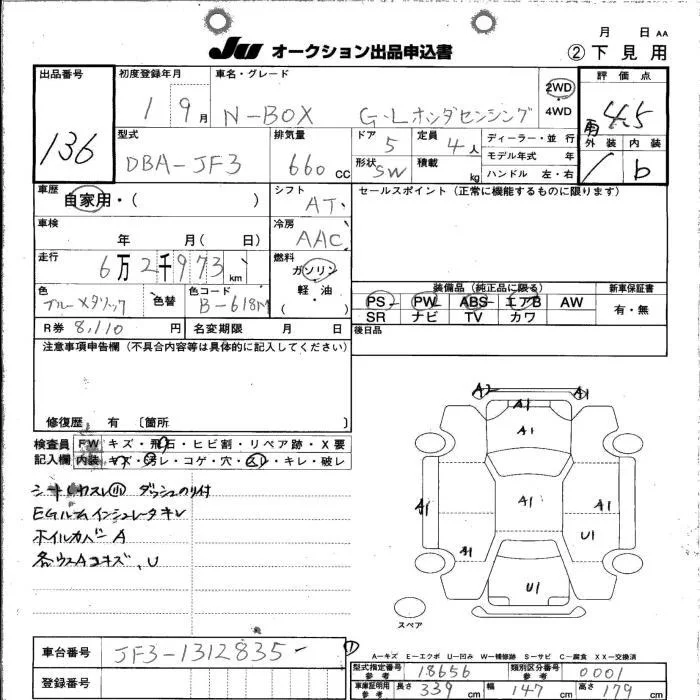 月 日 AA
JU オークション出品申込書 ②下見用
出品番号 初度登録年月 車名・グレード 2WD 4WD 評価点
136 1 9月 N-BOX G・Lホンダセンシング 4.5
型式 排気量 ドア 定員 ディーラー・並行 外装 内装
DBA-JF3 660cc 5 4人 モデル年式 年
形状 SW 積載 kg ハンドル 左・右 b
車歴 シフト セールスポイント (正常に機能するものに限ります)
自家用・( ) AT
車検 冷房
年 月( 日) AAC
走行 燃料
6万2千973km ガソリン 軽・油 ( )
色 色替 色コード 装備品(純正品に限る) 新車保証書
ブルーメタリック B-618M PS PW ABS エアB AW 有・無
SR ナビ TV カワ
R券 8,110円 名変期限 月 日 後日品
注意事項申告欄(不具合内容等は具体的に記入してください)
修復歴 有 〔箇所 〕
検査員 FW キズ・飛石・ヒビ割・リペア跡・X要
記入欄 内装 キズ・汚レ・コゲ・穴・スレ・キレ・破レ
ダッシュのり付
EGルームインシュレータキレ
ホイルカバーA
A2 A1
A1
A1
A1 A1 A1
A1 U1
U1
スペア
A-キズ E-エクボ U-凹み W-補修跡 S-サビ C-腐食 XX-交換済
車台番号 JF3-1312835
型式指定番号 参考 18656 類別区分番号 参考 0001
登録番号
車庫証明用 参考 長さ 339cm 幅 147cm 高さ 179cm